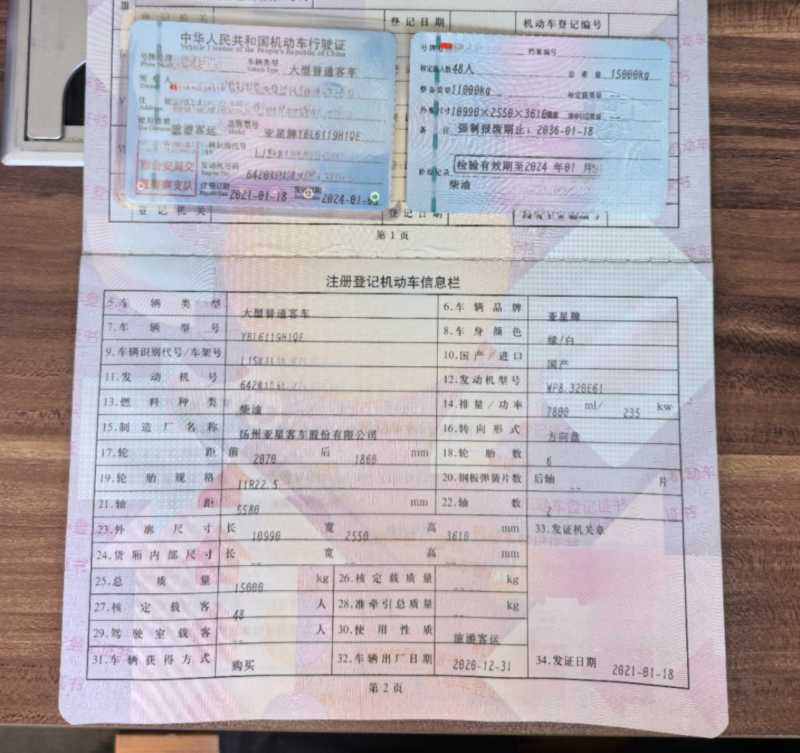 登记日期 机动车登记编号
中华人民共和国机动车行驶证
Vehicle License of the People's Republic of China
车辆类型 大型普通客车
旅游客运 品牌型号 亚星牌YBL6119H1QE
发动机号码
注册日期 2021-01-18
号牌号码 档案编号
核定载人数 48人 总质量 15000kg
整备质量 11000kg 核定载质量 --
外廓尺寸 10990×2550×3610
备注 强制报废期止：2036-01-18
检验记录 检验有效期至2024年01月
柴油
登记机关 登记日期
第1页
注册登记机动车信息栏
5.车辆类型 大型普通客车 6.车辆品牌 亚星牌
7.车辆型号 YBL6119H1QE 8.车身颜色 绿/白
9.车辆识别代号/车架号 10.国产/进口 国产
11.发动机号 12.发动机型号 WP8.320E61
13.燃料种类 柴油 14.排量/功率 7800 ml/ 235 kw
15.制造厂名称 扬州亚星客车股份有限公司 16.转向形式 方向盘
17.轮距 前 2070 后 1860 mm 18.轮胎数 6
19.轮胎规格 11R22.5 20.钢板弹簧片数 后轴 片
21.轴距 5580 mm 22.轴数 2
23.外廓尺寸 长 10990 宽 2550 高 3610 mm 33.发证机关章
24.货厢内部尺寸 长 -- 宽 -- 高 -- mm
25.总质量 15000 kg 26.核定载质量 -- kg
27.核定载客 48 人 28.准牵引总质量 -- kg
29.驾驶室载客 -- 人 30.使用性质 旅游客运
31.车辆获得方式 购买 32.车辆出厂日期 2020-12-31 34.发证日期 2021-01-18
第2页